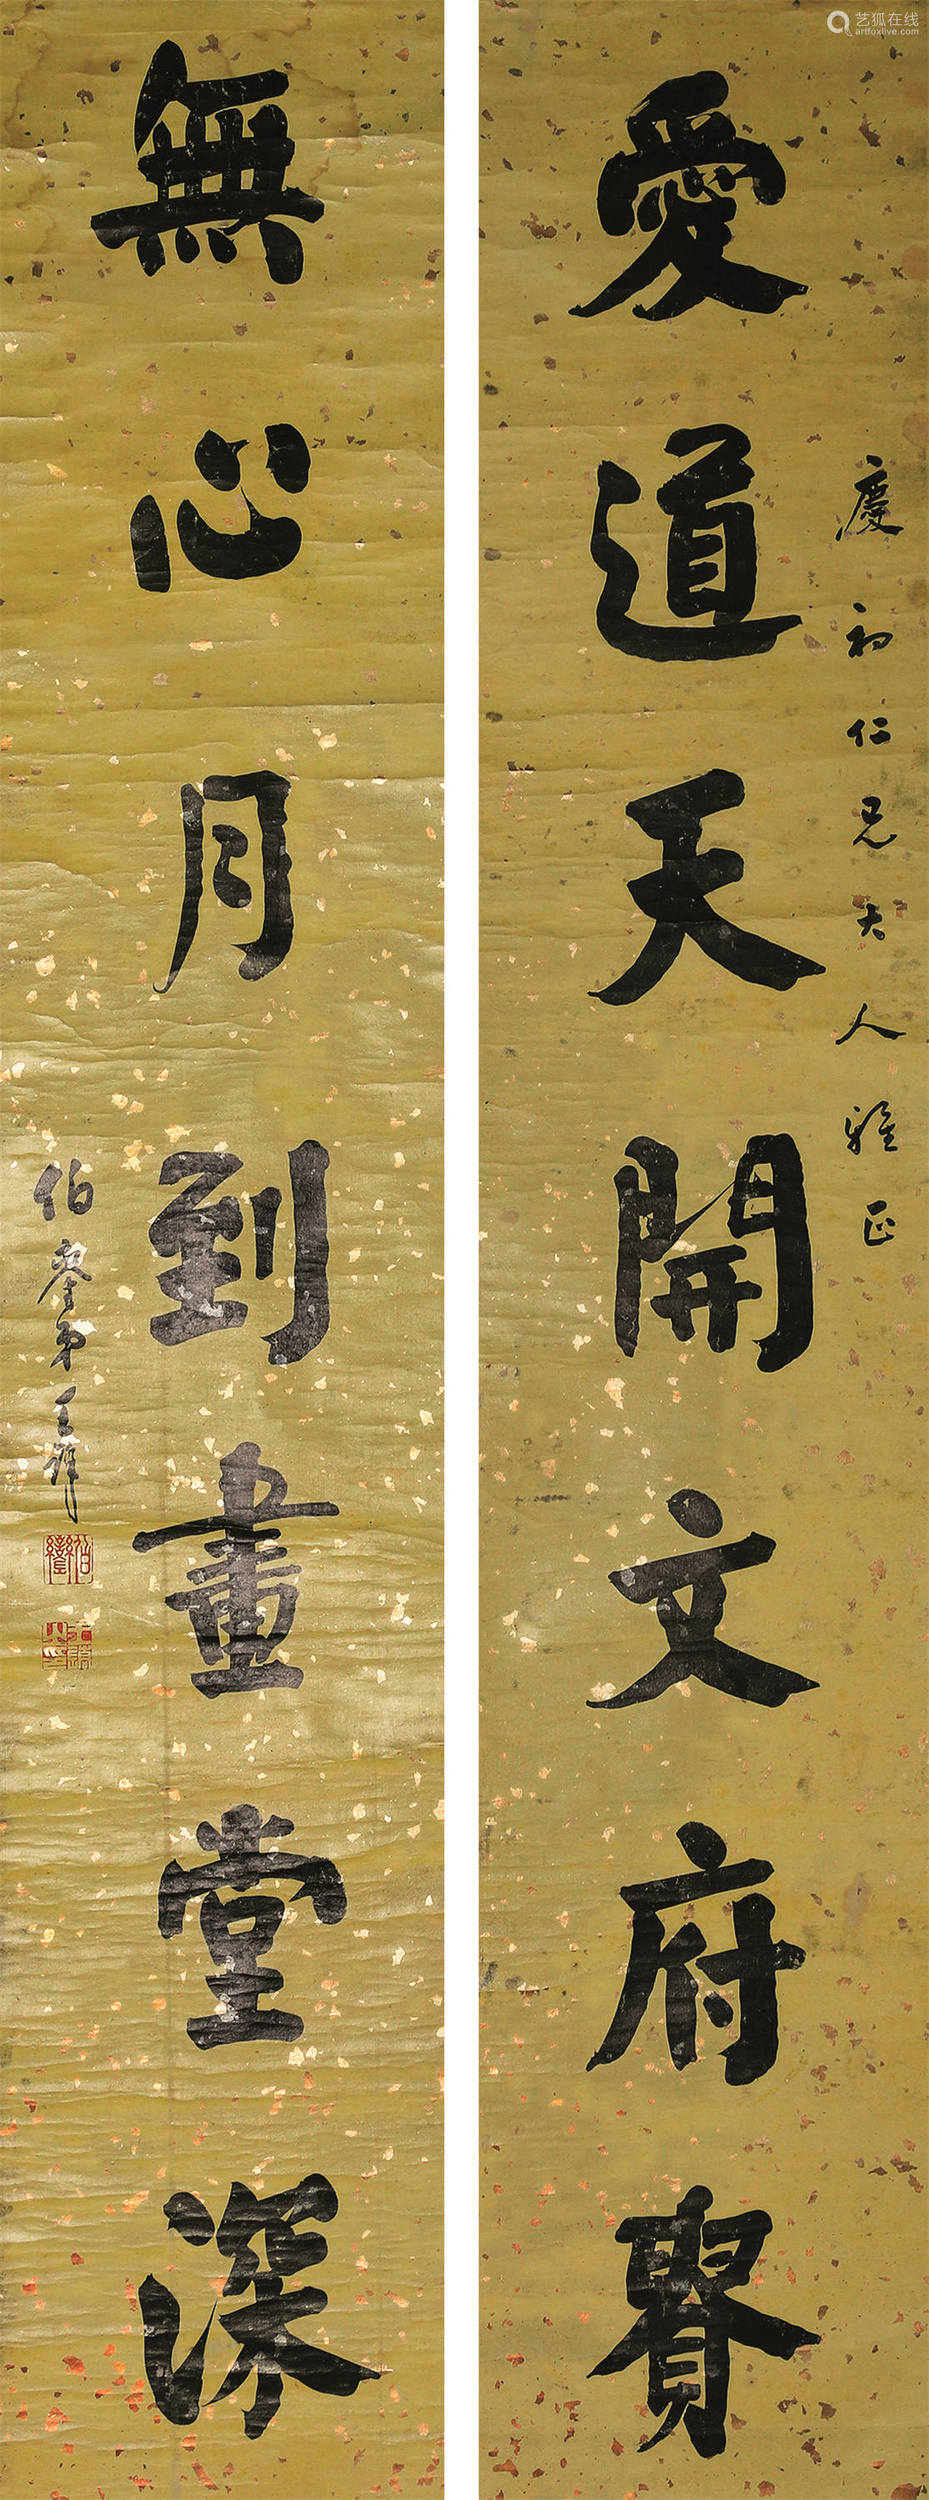 愛道天開文府貴
慶初仁兄大人雅正
無心月到畫堂深
伯鑾弟王
伯鑾
艺狐在线
artfoxlive.com